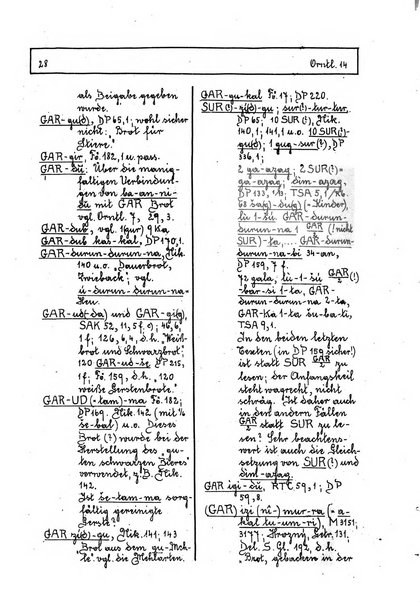 28
Orntl. 14
als Beigabe gegeben
wurde.
GAR-gu(d), DP 65,1; wohl sicher
nicht: "Brot für
Stiere."
GAR-gir, Fö. 182,1 u. pass.
GAR-šü: Über die manig-
faltigen Verbindun-
gen von ba-an-ni-
šü mit GAR Brot
vgl. Orntl. 7, 29,3.
GAR-dub, vgl. 9Ka
GAR-dub kas-kal, DP 170,1.
GAR-durun-durun-na, Nik.
140 u.o. "Dauerbrot,
Zwieback"; vgl.
ú-durun-durun-na=
Heu.
GAR-ud(-da) und GAR-gi(g),
SAK 52, 11, 5f.; 46, 6,
1f; 126, 6,4, d.h. "Weiß-
brot und Schwarzbrot";
120 GAR-ud-še DP 215,
1f; Fö. 159, d.h., 120
weiße Gerstenbrote".
GAR-UD(-tam)-ma Fö. 182;
DP 169. Nik. 142 (mit
še-bal) u.o. Dieses
Brot (?) wurde bei der
Herstellung des "gu-
ten schwarzen Bieres"
verwendet, z.B. Nik.
142.
Ist še-tam-ma sorg-
fältig gereinigte
Gerste?
GAR zi(d)-gu, Nik. 141; 143
"Brot aus dem gu-Meh-
le" vgl. die Mehlarten.
GAR-gu-kal Fö. 17; DP 220.
SUR(?)-zi(d)-gu; sur(?)-tur-tur,
DP 65; 10 SUR(?), Nik.
140,1; 141,1 u.o. 10 SUR(?)-
gu(d); 1 gug-sur(?), DP
336,1;
2 ga-azag; 2 SUR(?)=
ga-azag; dim-azag,
DP 133, 1,3; TSA 5,
(-Kinder),
lù 1-šü. GAR-durun-
durun-na 1 GAR/2 (! nicht
SUR)-ta, ... GAR-durun-
durun-na-bi 34-an,
DP 159, 7f.
72 gala, lù-1-šü GAR/2 (!)
bar-si 1-ta, GAR-
durun-durun-na 2-ta,
GAR-Ka 1-ta šu-ba-ti,
TSA 9,1.
In den beiden letzten
Texten (in DP 159 sicher!)
ist statt SUR GAR/2 zu
lesen; der Anfangskeil
steht wagrecht, nicht
schräg. Ist daher auch
in den andern Fällen
GAR/2 statt SUR zu le-
sen? Sehr beachtens-
wert ist auch die Gleich-
setzung von SUR(?) und
dim-azag.
GAR igi-šü, RTC 59,1; DP
59, 8.
(GAR) izi (ni-) mur-ra (= a-
kal tu-um-ri), M 3151;
3177; Hrozný, Getr. 131.
Del. S. Gl. 192, d.h.
"Brot, gebacken in der